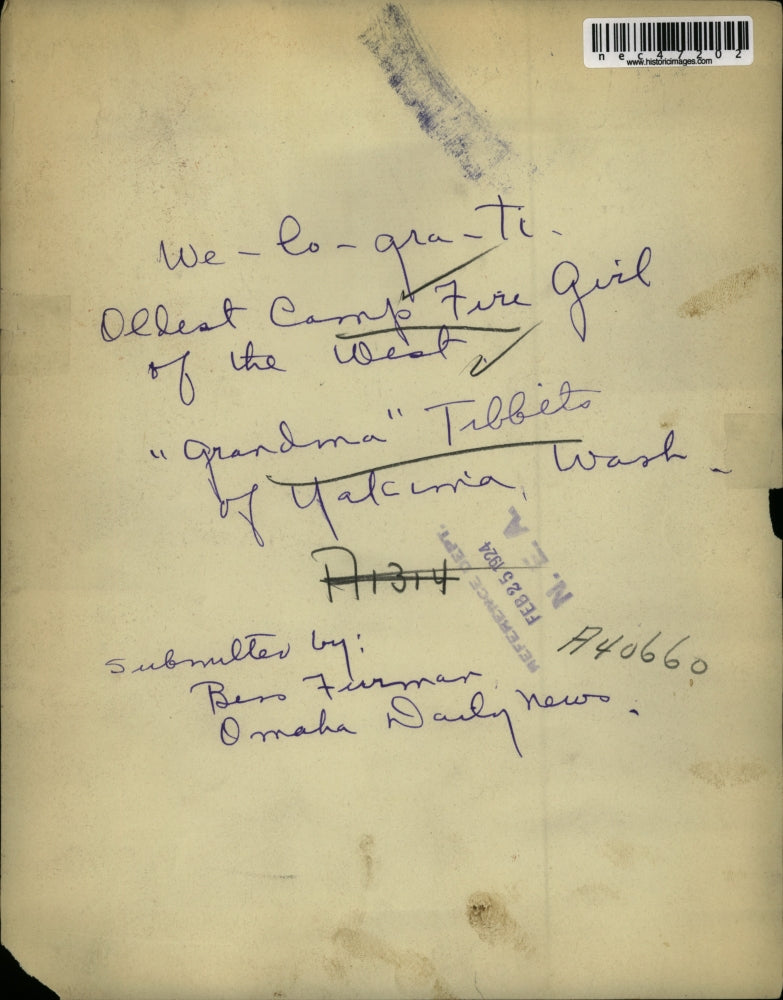 nec47202
www.historicimages.com
We-lo-gra-Ti-
Oldest Camp Fire Girl
of the West.
"Grandma" Tibbets
of Yakima, Wash.
A1314
REFERENCE DEPT.
FEB 25 1924
N.E.A.
A40660
Submitted by:
Bess Furman
Omaha Daily News.